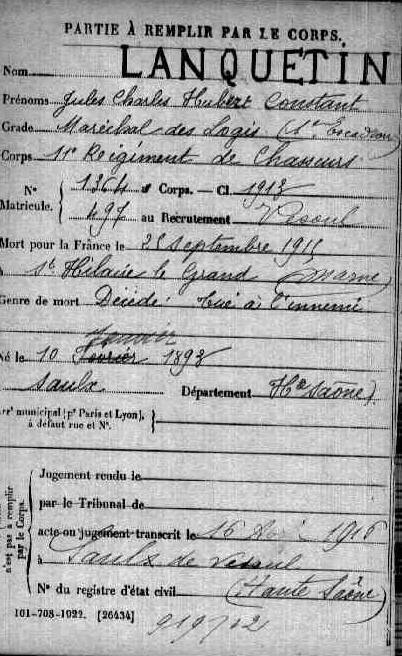 PARTIE À REMPLIR PAR LE CORPS.
Nom LANQUETIN
Prénoms Jules Charles Hubert Constant
Grade Maréchal des Logis (1er Escadron)
Corps 11e Régiment de Chasseurs
N° Matricule. 1364 au Corps. — Cl. 1913
497 au Recrutement Vesoul
Mort pour la France le 25 septembre 1915
à St Hilaire le Grand (Marne)
Genre de mort Décédé tué à l'ennemi
Janvier
Né le 10 Février 1893
Saulx Département Hte Saône)
arrt municipal (pr Paris et Lyon),
à défaut rue et N°.
n'est pas à remplir par le Corps.
Jugement rendu le
par le Tribunal de
acte ou jugement transcrit le 16 1916
à Saulx de Vesoul
N° du registre d'état civil (Haute Saône)
101-708-1922. [26434]
919702